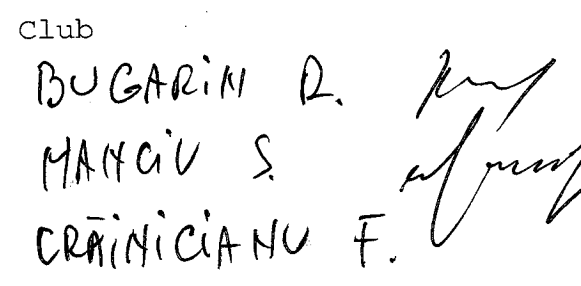 Club
BUGARIN R.
MANCIU S.
CRĂINICIANU F.